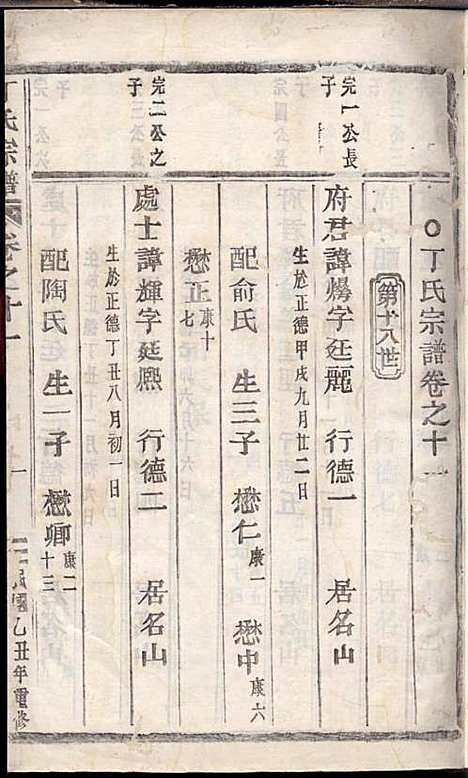 丁氏宗譜卷之十一
第十八世
完一公長子
府君諱爆字廷麗 行德一 居名山
生於正德甲戌九月廿二日
配俞氏 生三子 懋仁康一 懋中康六
懋正康十七
完二公之子
處士諱輝字廷熙 行德二 居名山
生於正德丁丑八月初一日
配陶氏 生一子 懋卿康二十三
丁氏宗譜 卷之十一 一 民國乙丑年重修